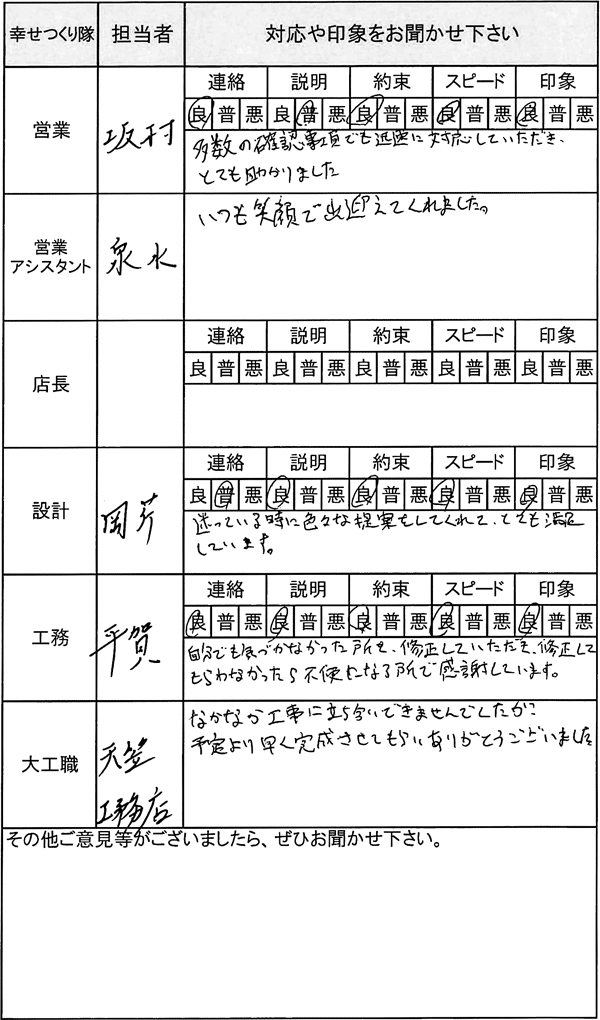 幸せつくり隊 担当者 対応や印象をお聞かせ下さい
営業 坂村 連絡 説明 約束 スピード 印象
良 普 悪 良 普 悪 良 普 悪 良 普 悪 良 普 悪
多数の確認事項でも迅速に対応していただき、
とても助かりました
営業
アシスタント 泉水 いつも笑顔で出迎えてくれました。
店長 連絡 説明 約束 スピード 印象
良 普 悪 良 普 悪 良 普 悪 良 普 悪 良 普 悪
設計 岡芹 連絡 説明 約束 スピード 印象
良 普 悪 良 普 悪 良 普 悪 良 普 悪 良 普 悪
迷っている時に色々な提案をしてくれて、とても満足
しています。
工務 平賀 連絡 説明 約束 スピード 印象
良 普 悪 良 普 悪 良 普 悪 良 普 悪 良 普 悪
自分でも気づかなかった所を、修正していただき、修正して
もらわなかったら不便になる所で感謝しています。
大工職 天笠
工務店
なかなか工事に立ち会いできませんでしたが、
予定より早く完成させてもらいありがとうございました
その他ご意見等がございましたら、ぜひお聞かせ下さい。